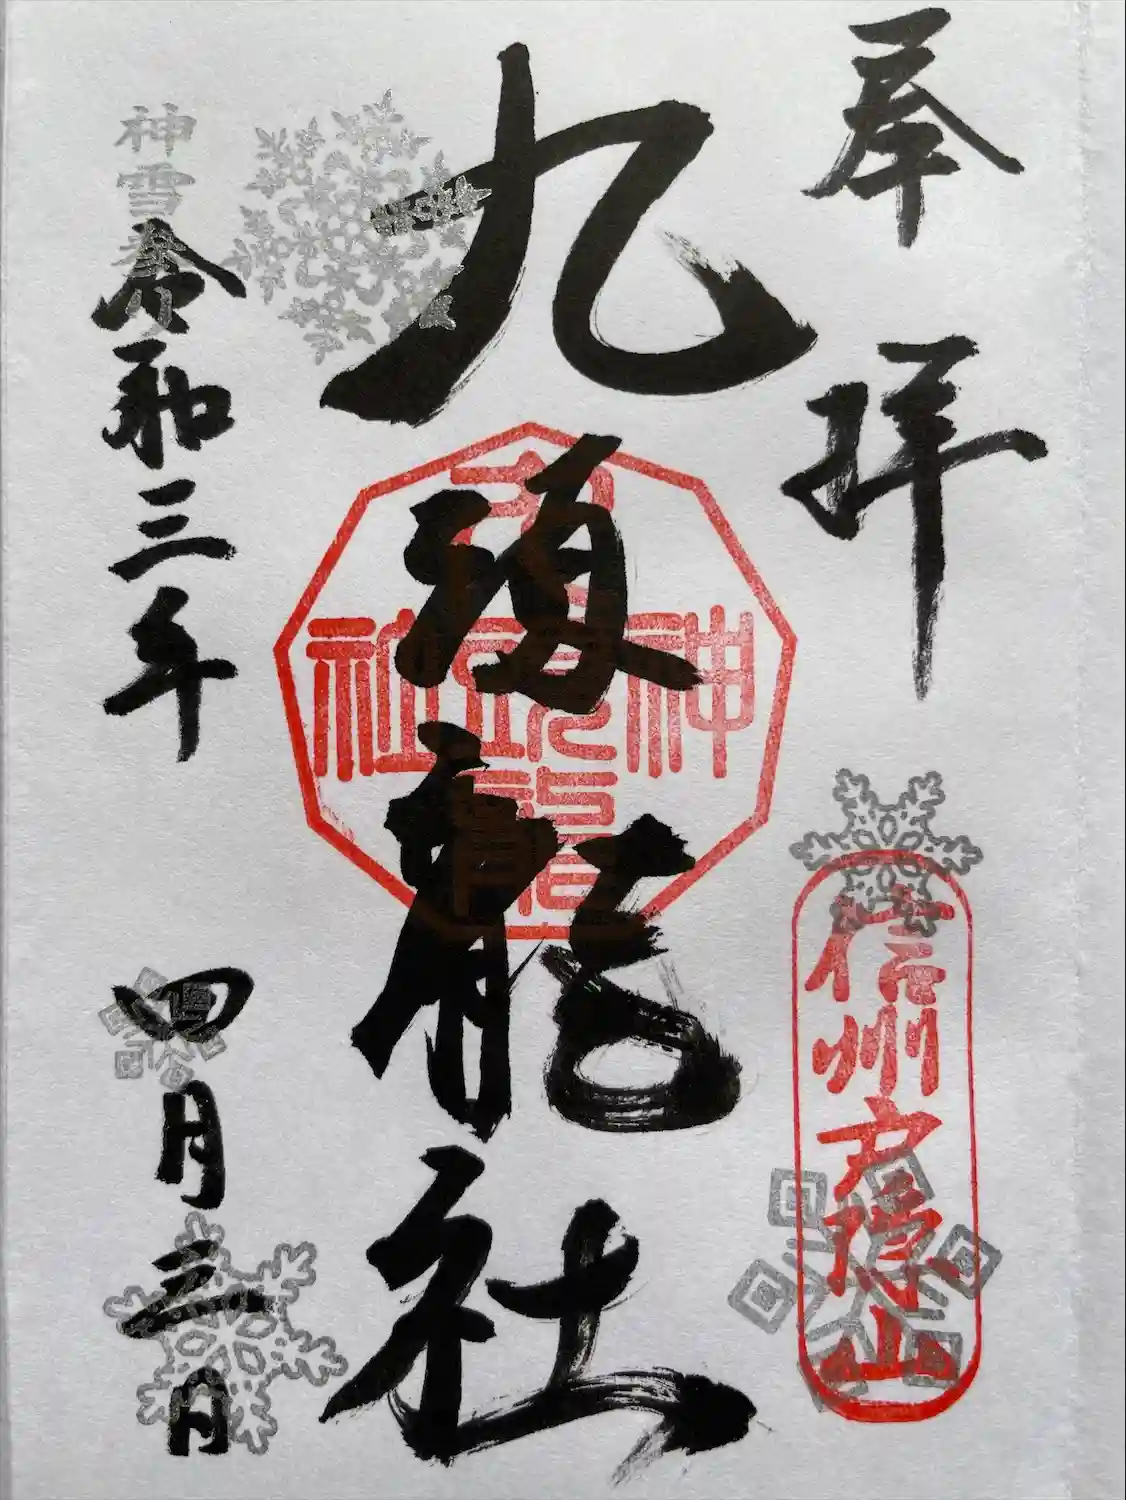 奉拝
信州戸隠山
九頭龍社
九頭龍神社
神雪参り
令和三年
四月三日